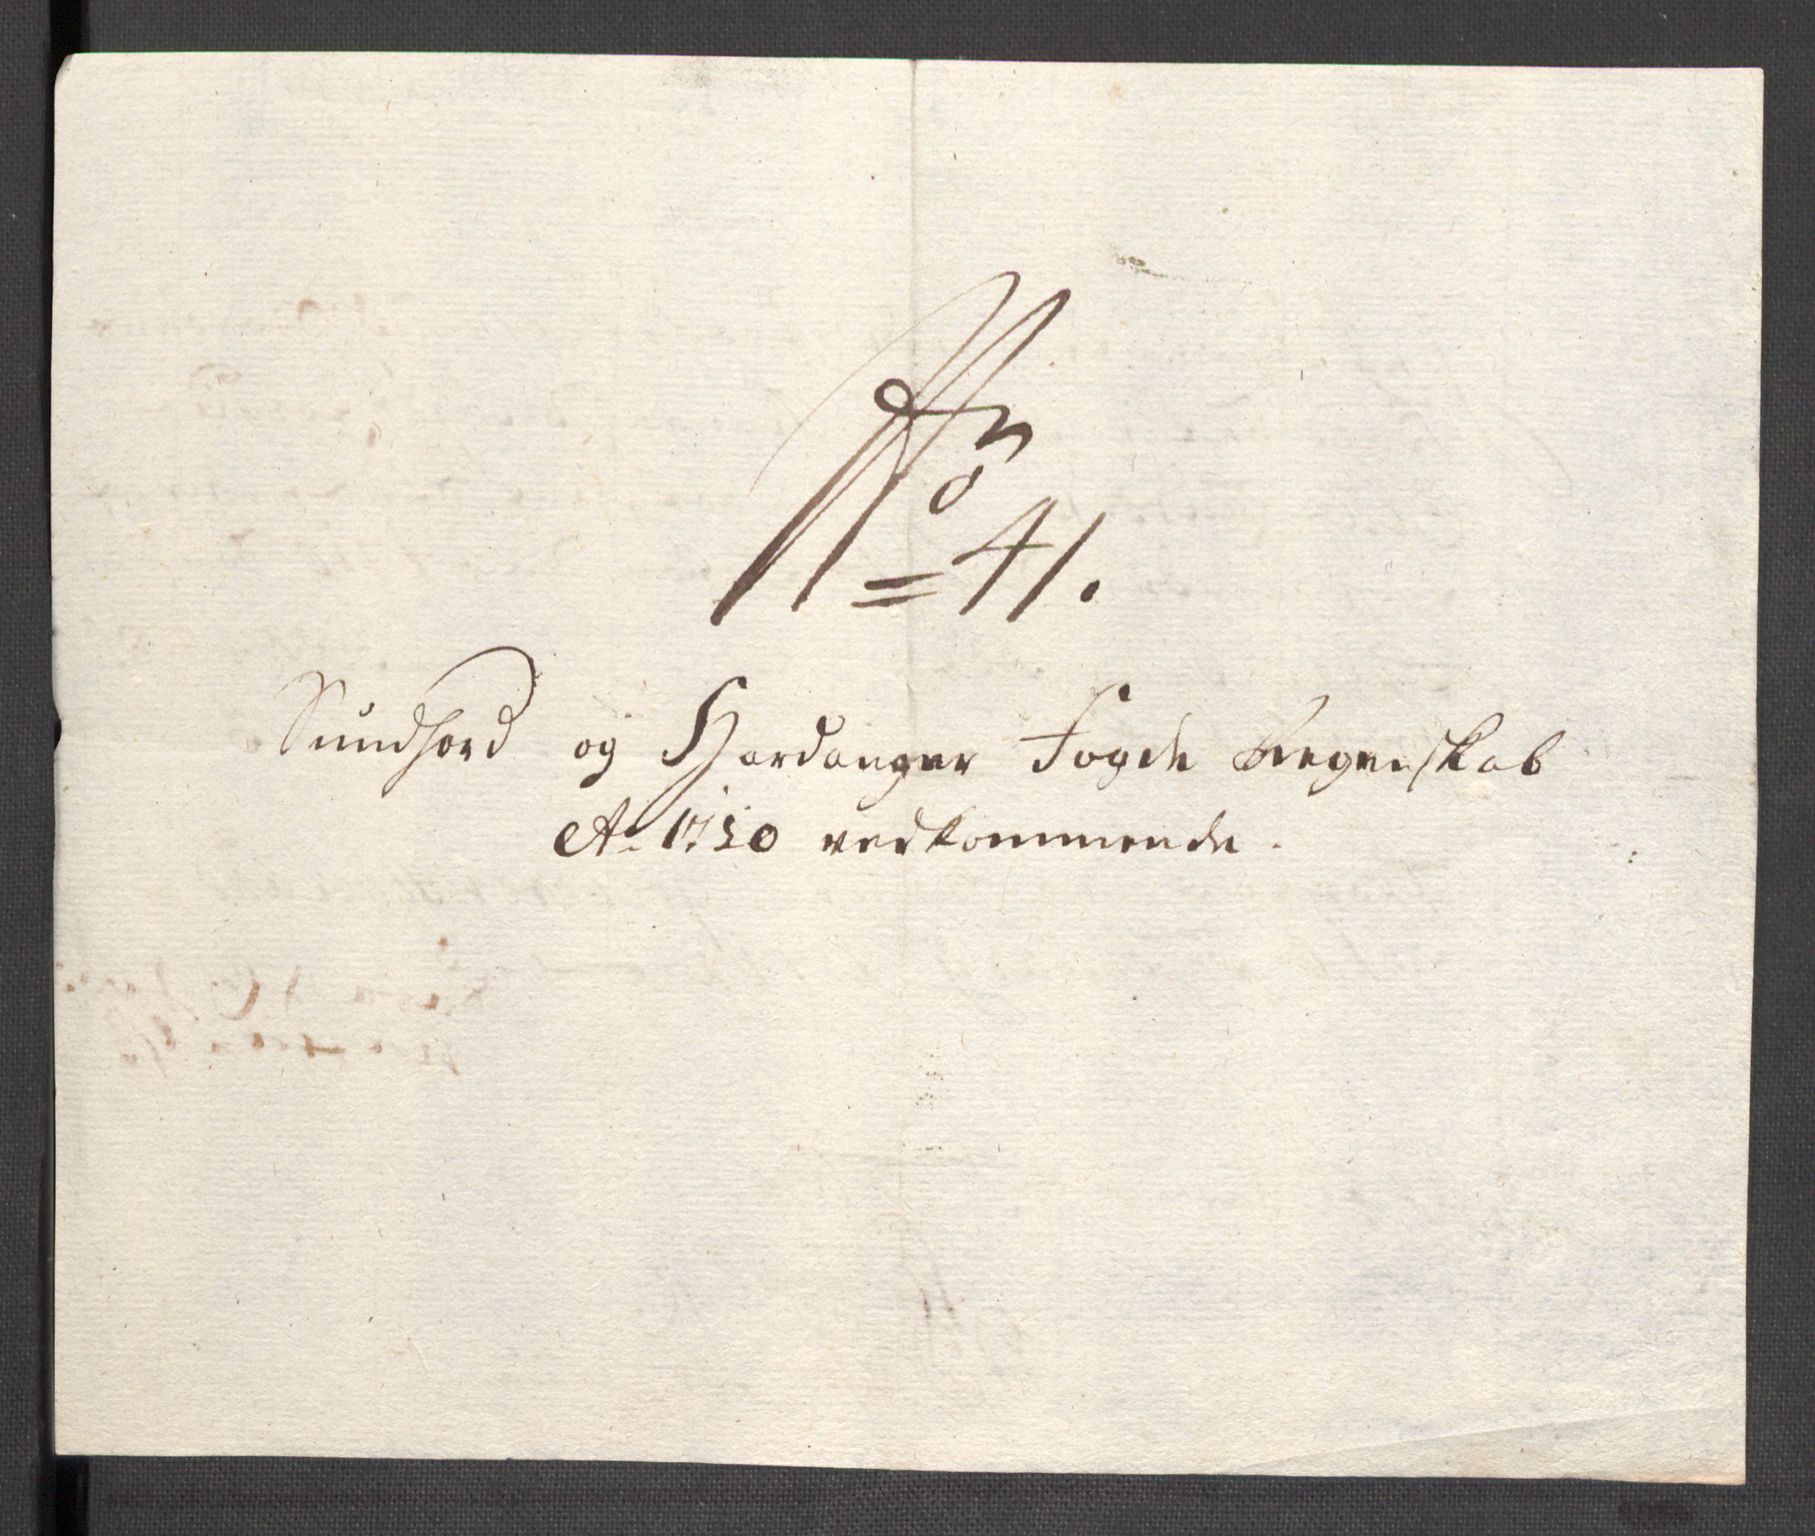 No
= 41.
Sundhord og Hardanger Fogde Regenskab
Ao 1710 vedkommende.